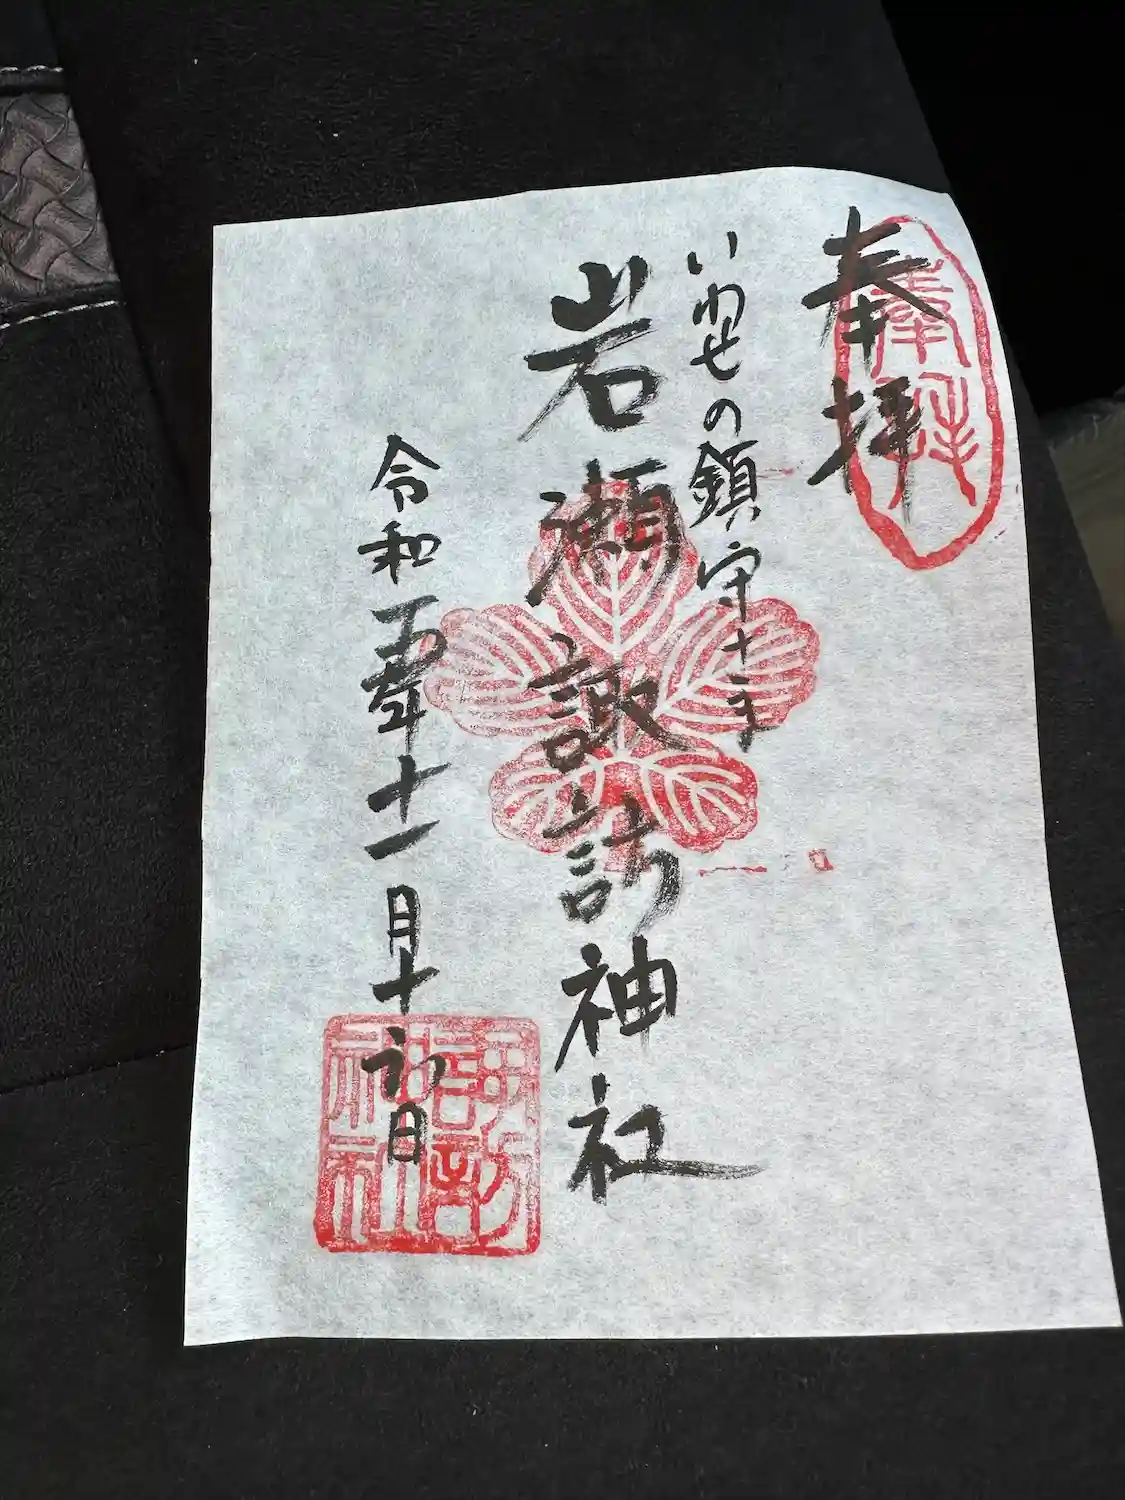 奉拝
奉拝
いわせの鎮守さま
岩瀬諏訪神社
令和五年十一月十六日
諏訪神社